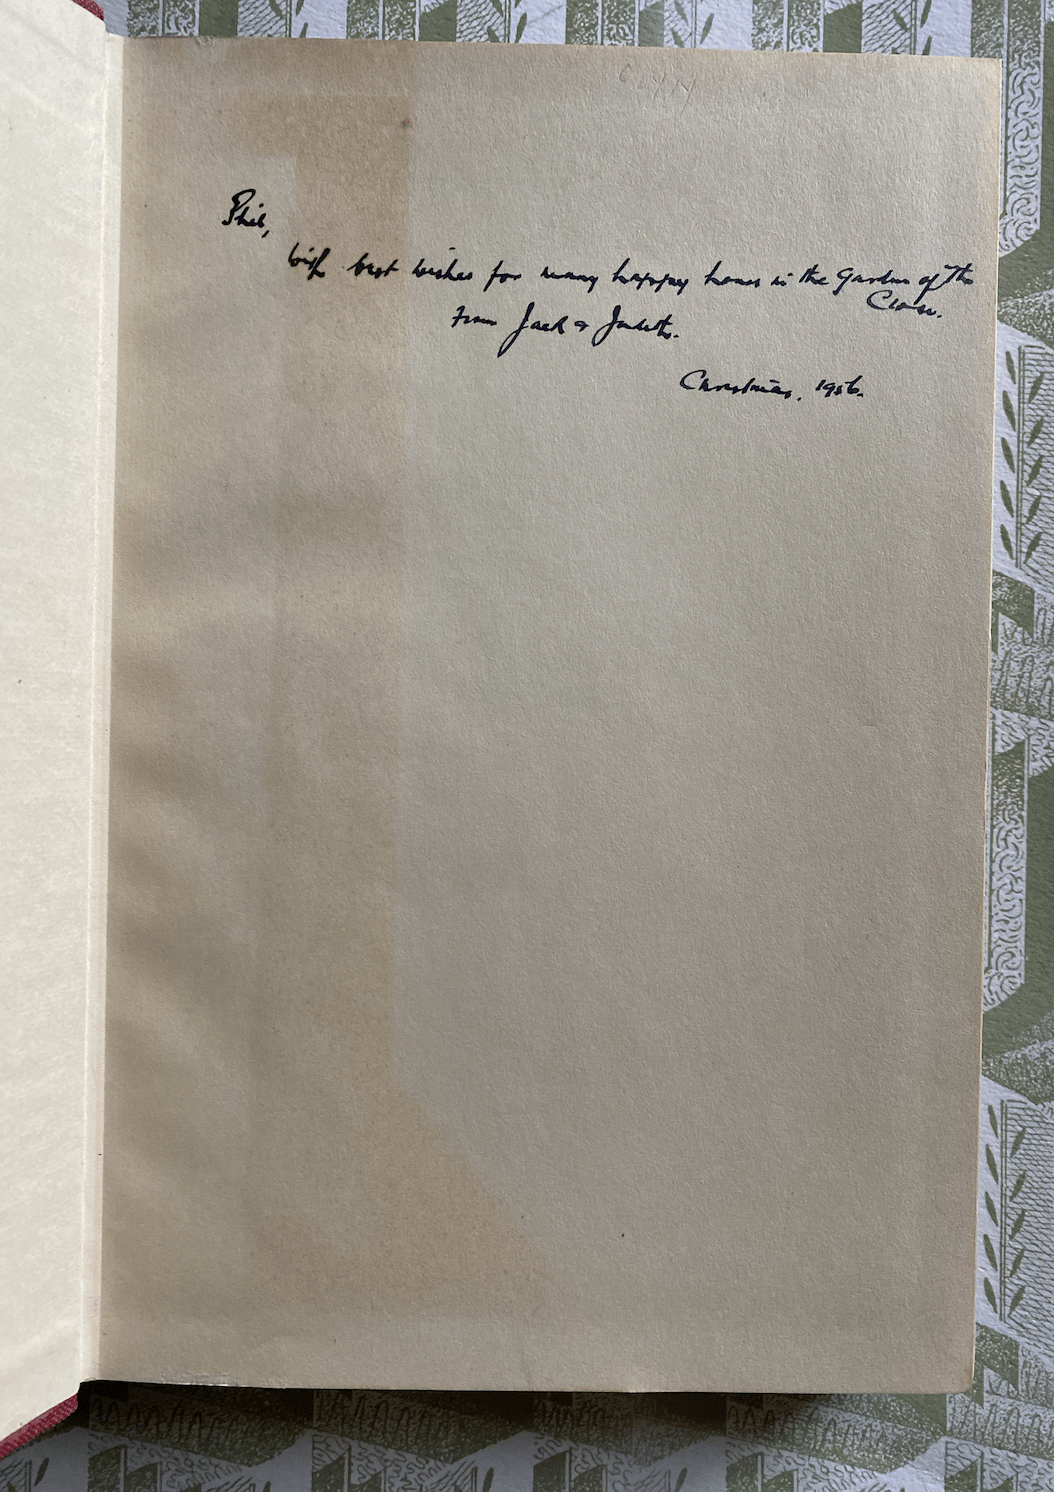 Phil,
With best wishes for many happy hours in the Garden of the
Close.
from Jack & Judith.
Christmas. 1956.